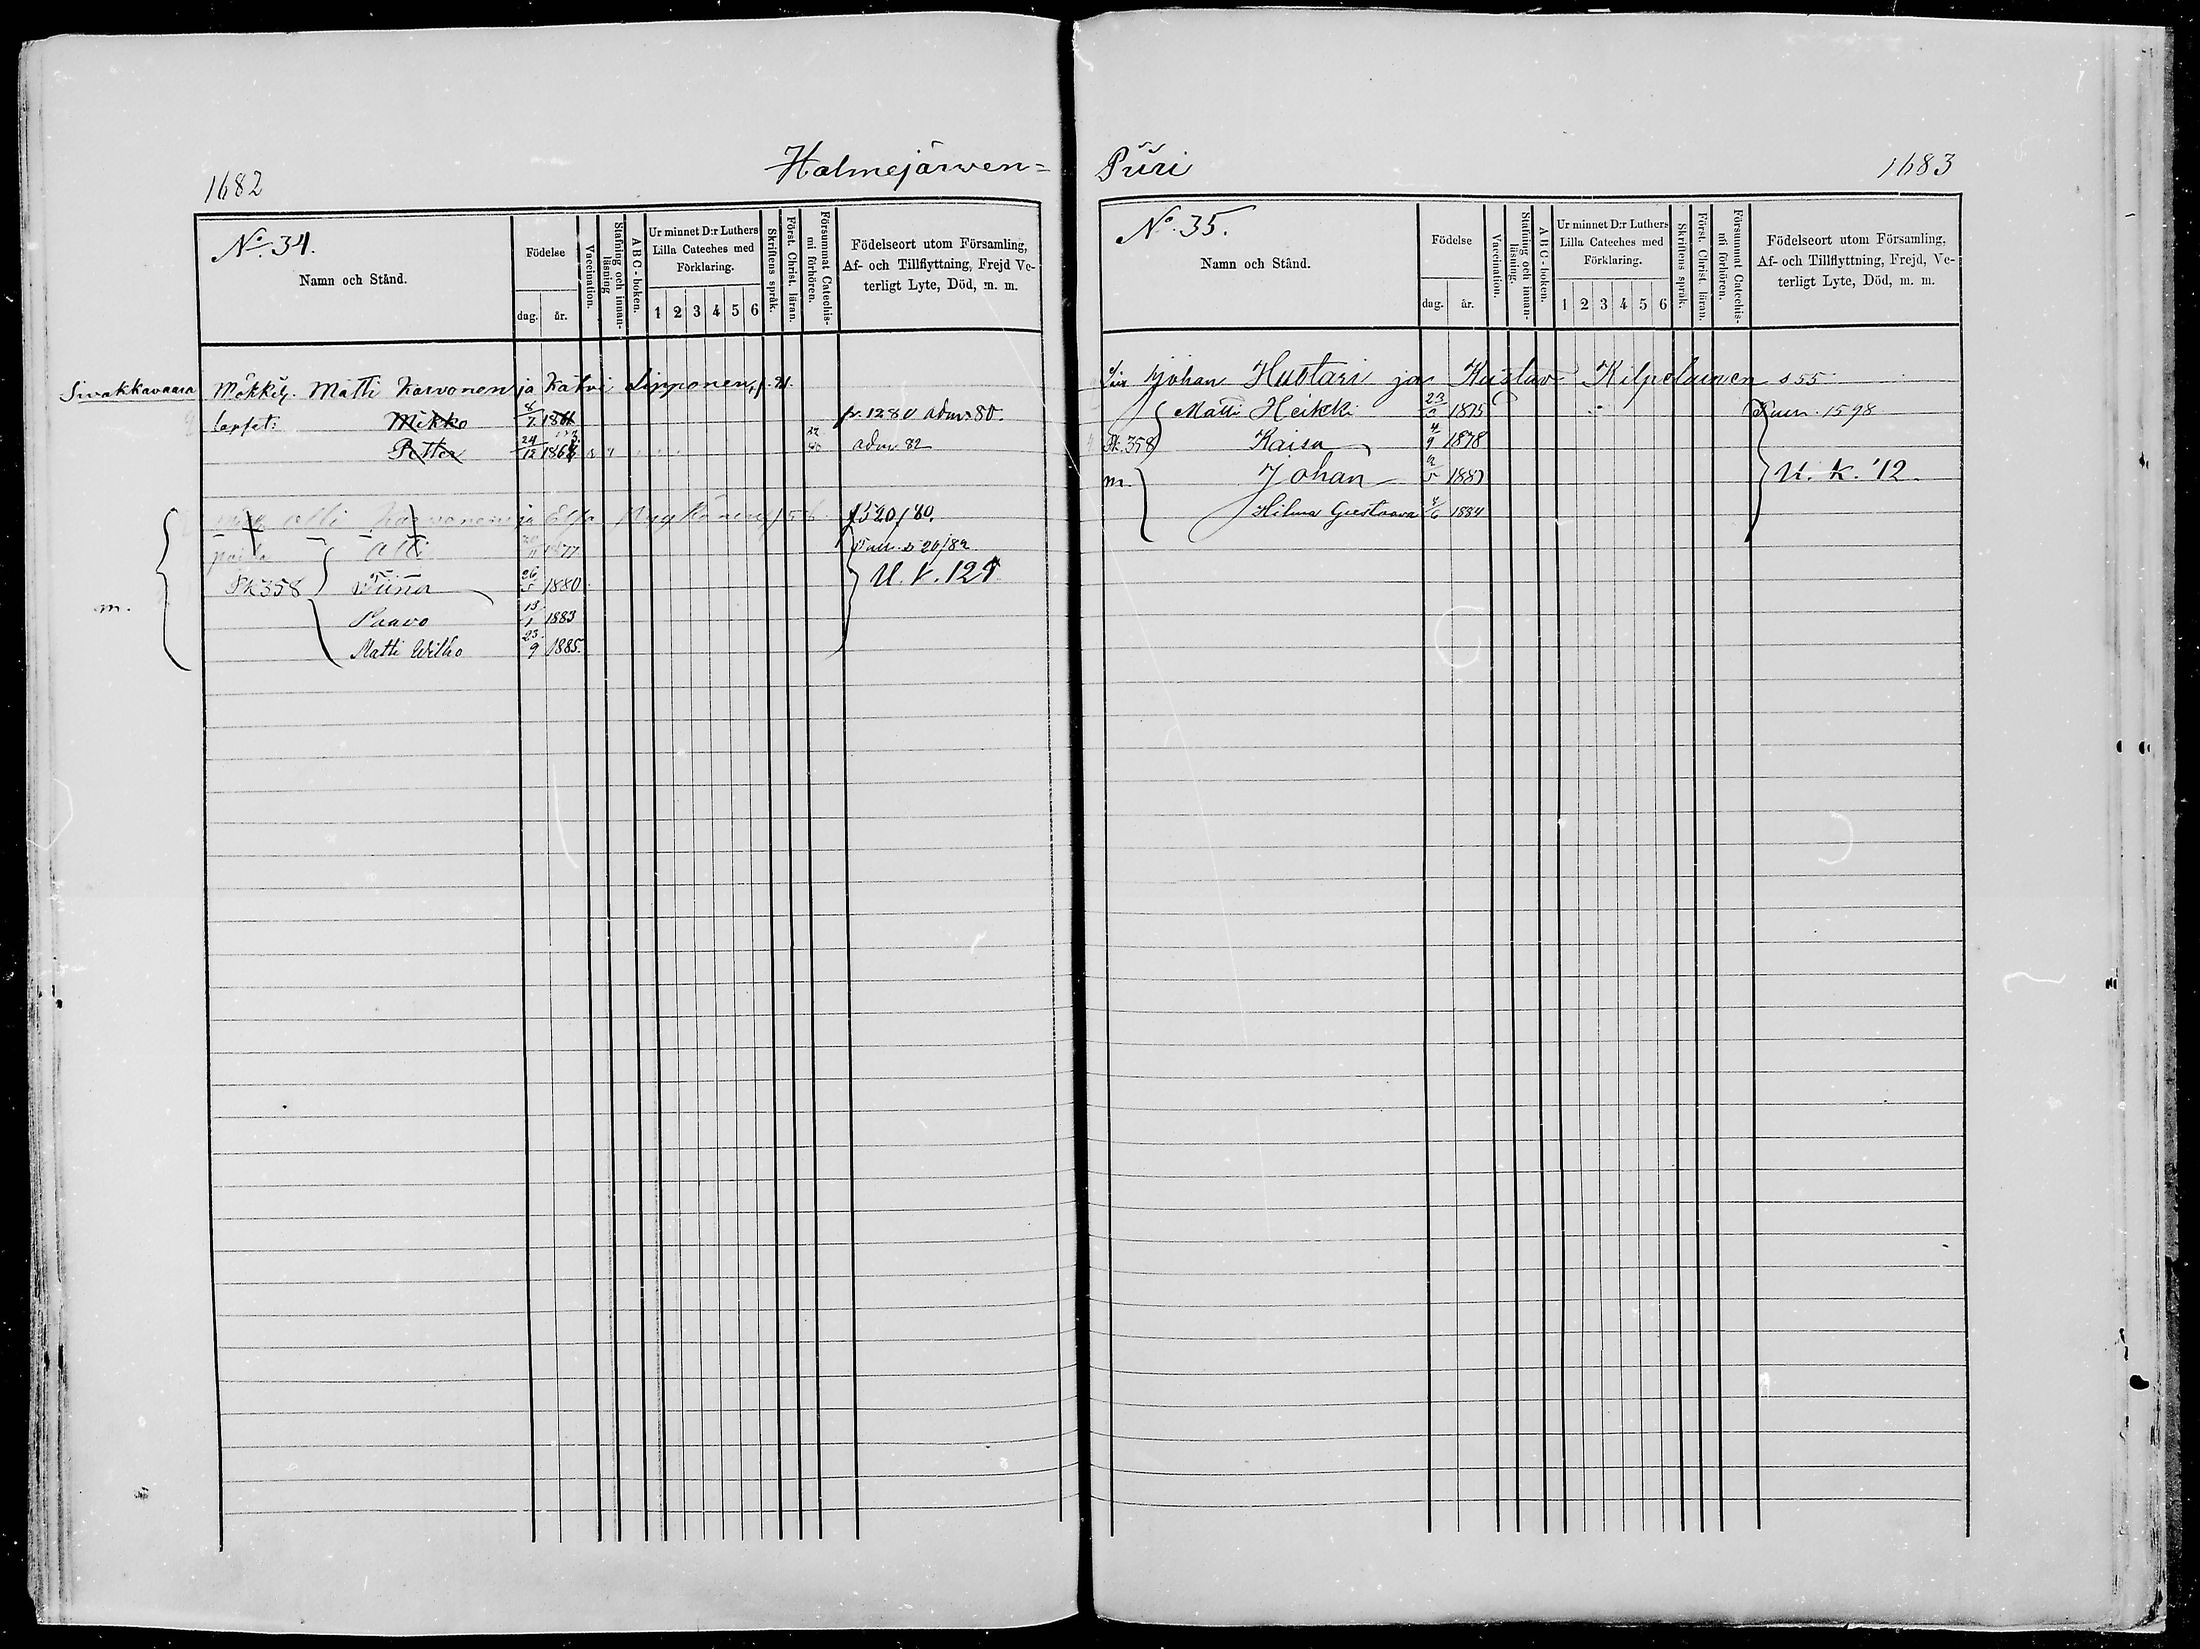 1682
Halmejärwen=
No. 34.
Namn och Stånd.
Födelse
dag. år.
Vaccination.
Stafning och innan-läsning
ABC-boken.
Ur minnet D:r Luthers Lilla Cateches med Förklaring.
1 2 3 4 5 6
Skriftens språk.
Först. Christ. läran.
Försummat Catechis-mi förhören.
Födelseort utom Församling, Af- och Tillflyttning, Frejd Ve-terligt Lyte, Död, m. m.
Sivakkavaara Mökkil. Matti Karvonen ja Katri Lipponen
lapset: Mikko 8/7 p. 1280 adm. 80.
Petter 24/12 adm 82
Olli Karvonen ja Elsa 1520/80.
Olli 1877
Sk 358 Wiina 26/5 1880
m.
Paavo 1883
Matti Wilho 23/9 1885.
Piiri
1683
No. 35.
Namn och Stånd.
Födelse
dag. år.
Vaccination.
Stafning och innan-läsning.
ABC-boken.
Ur minnet D:r Luthers Lilla Cateches med Förklaring.
1 2 3 4 5 6
Skriftens språk.
Först. Christ. läran.
Försummat Catechis-mi förhören.
Födelseort utom Församling, Af- och Tillflyttning, Frejd, Ve-terligt Lyte, Död, m. m.
Johan Hustari ja Kustav Kilpelainen s 55
Matti Heikki 1875 1598
Sk. 358 Kaisa 4/9 1878
m. Johan U. K. '12.
Hilma Gustaava 4/6 1884